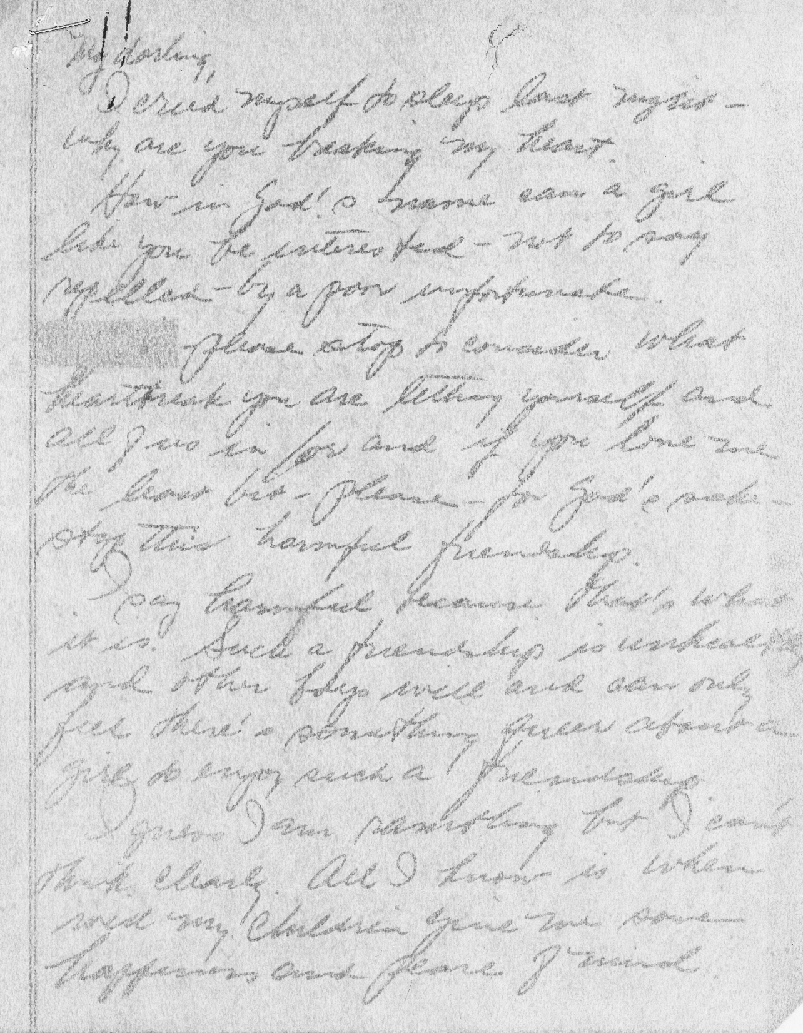 My darling,
I cried myself to sleep last night –
why are you breaking my heart.
How in God's name can a girl
like you be interested – not to say
repelled – by a poor unfortunate.
please stop to consider what
heartbreak you are letting yourself and
all of us in for and if you love me
the least bit – please – for God's sake –
stop this harmful friendship.
I say harmful because that's what
it is. Such a friendship is unhealthy
and other boys will and can only
feel there's something queer about a
girl to enjoy such a friendship
I guess I am rambling but I can't
think clearly. All I know is when
will my children give me some
happiness and peace of mind.